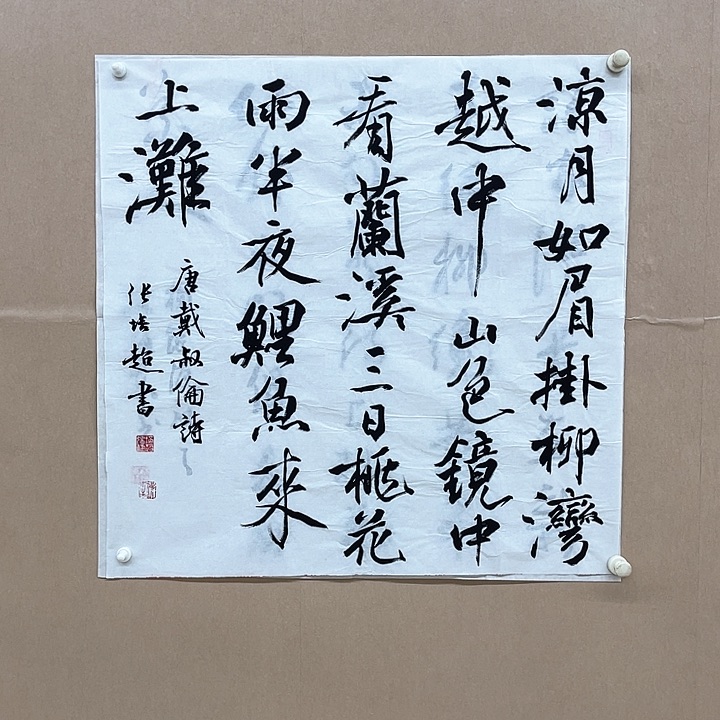 涼月如眉掛柳灣
越中山色鏡中
看蘭溪三日桃花
雨半夜鯉魚來
上灘
唐戴叔倫詩
張培超書